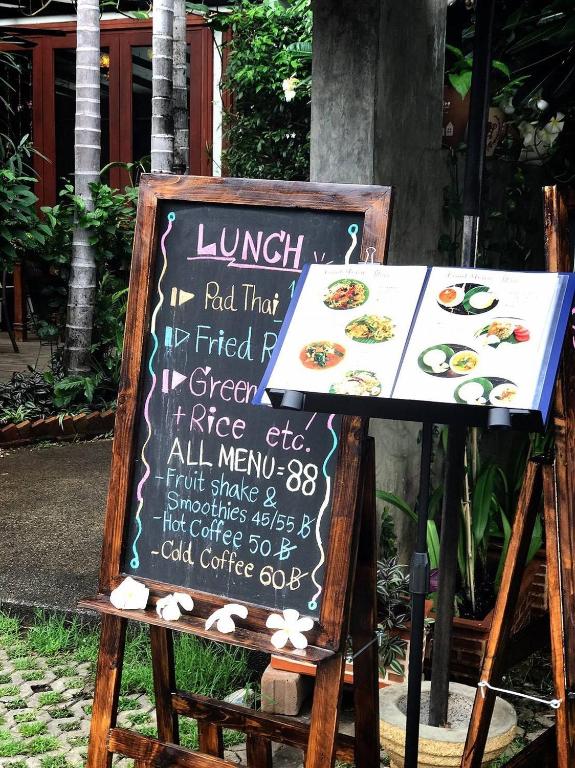 LUNCH
Pad Thai
Fried R
Green
+ Rice etc.
ALL MENU = 88
- Fruit shake &
Smoothies 45/55 ฿
- Hot Coffee 50 ฿
- Cold Coffee 60 ฿